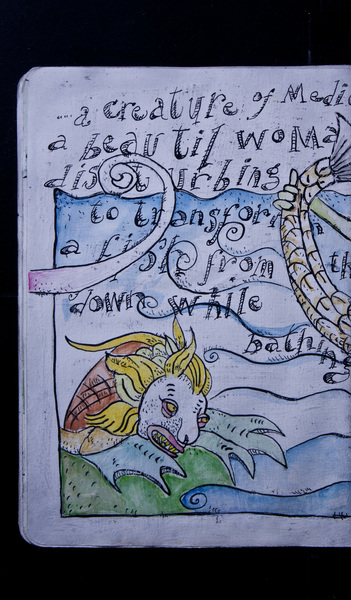 ...a creature of Medie
a beautif woma
disturbing
to transform
a fish from th
down while
bathing